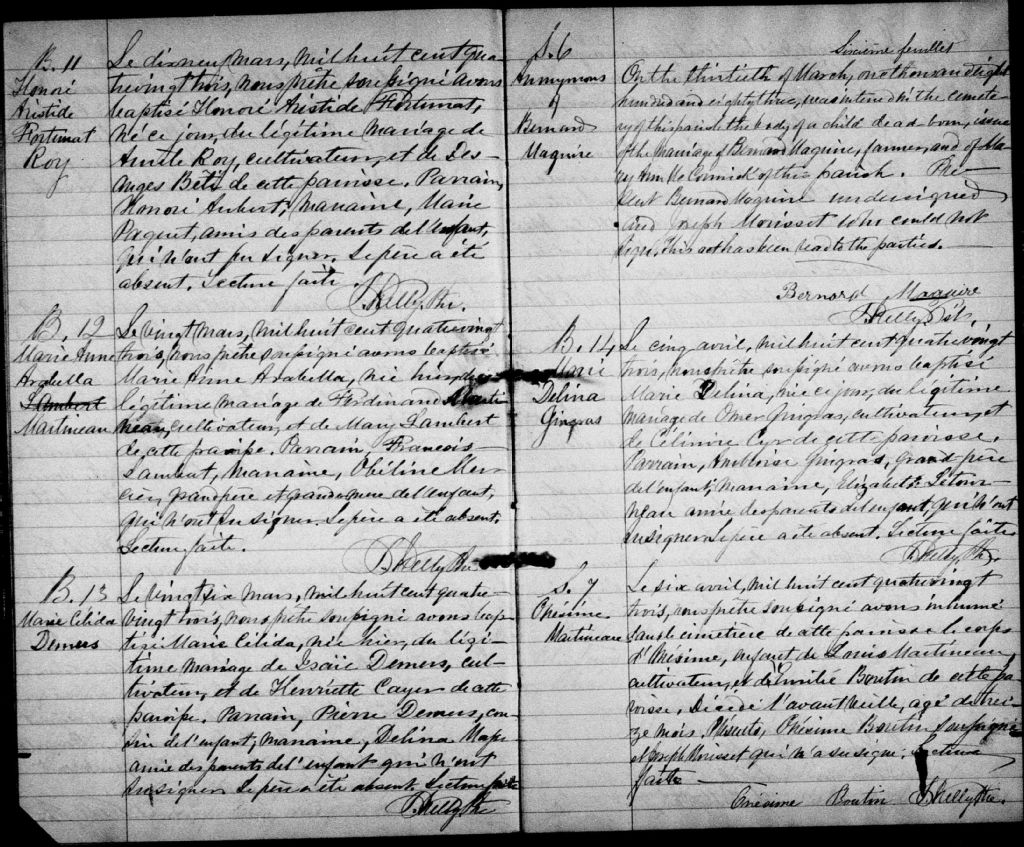 B. 11
Honoré
Aristide
Fortunat
Roy
Le dix neuf mars, mil huit cent qua-
trevingt trois, nous prêtre soussigné avons
baptisé Honoré Aristide Fortunat,
né ce jour, du légitime mariage de
Roy, cultivateur, et de Des-
anges de cette paroisse. Parrain,
Honoré Aubert, marraine, Marie
Paquet, amis des parents de l'enfant,
qui n'ont pu signer. Le père a été
absent. Lecture faite.
J. Kelly Ptre.
B. 12
Marie Anne
Arabella
Lambert
Martineau
Le vingt mars, mil huit cent quatrevingt
trois, nous prêtre soussigné avons baptisé
Marie Anne Arabella, née hier, du
légitime mariage de Ferdinand Marti
neau, cultivateur, et de Mary Lambert
de cette paroisse. Parrain, François
Lambert, marraine, Mer-
cier, grandpère et grandemère de l'enfant,
qui n'ont su signer. Le père a été absent.
Lecture faite.
J. Kelly Ptre
B. 13
Marie Célida
Demers
Le vingt six mars, mil huit cent quatre-
vingt trois, nous prêtre soussigné avons bap-
tisé Marie Célida, née hier, du légi-
time mariage de Isaïe Demers, cul-
tivateur, et de Henriette Cayer de cette
paroisse. Parrain, Pierre Demers, cou-
sin de l'enfant, marraine, Delina
amie des parents de l'enfant qui n'ont
su signer. Le père a été absent. Lecture faite
J. Kelly Ptre
Sixième feuillet
S. 6
Annymous
of
Bernard
Maguire
On the thirtieth of March, one thousand eight
hundred and eighty three, was interred in the cemete-
ry of this parish the body of a child dead born, issue
of the marriage of Bernard Maguire, farmer, and of Ma-
ry Ann McCormick of this parish. Pre-
sent Bernard Maguire undersigned
and Joseph Morisset who could not
sign. This act has been read to the parties.
Bernard Maguire
J. Kelly Pst.
B. 14
Marie
Delina
Gingras
Le cinq avril, mil huit cent quatrevingt
trois, nous prêtre soussigné avons baptisé
Marie Delina, née ce jour, du légitime
mariage de Omer Gingras, cultivateur, et
de Célinire Cyr de cette paroisse.
Parrain, Ambroise Gingras, grand père
de l'enfant, marraine, Elizabeth Létour-
neau amie des parents de l'enfant, qui n'ont
su signer. Le père a été absent. Lecture faite
J. Kelly Ptre.
S. 7
Onésime
Martineau
Le six avril, mil huit cent quatrevingt
trois, nous prêtre soussigné avons inhumé
dans le cimetière de cette paroisse le corps
d'Onésime, enfant de Louis Martineau,
cultivateur, et d'Emilie Boutin de cette pa-
roisse. Décédé l'avant veille, agé de trei-
ze mois. Présents, Onésime Boutin soussigné
et Joseph Morisset qui n'a su signer. Lecture
faite
Onésime Boutin J. Kelly Ptre.